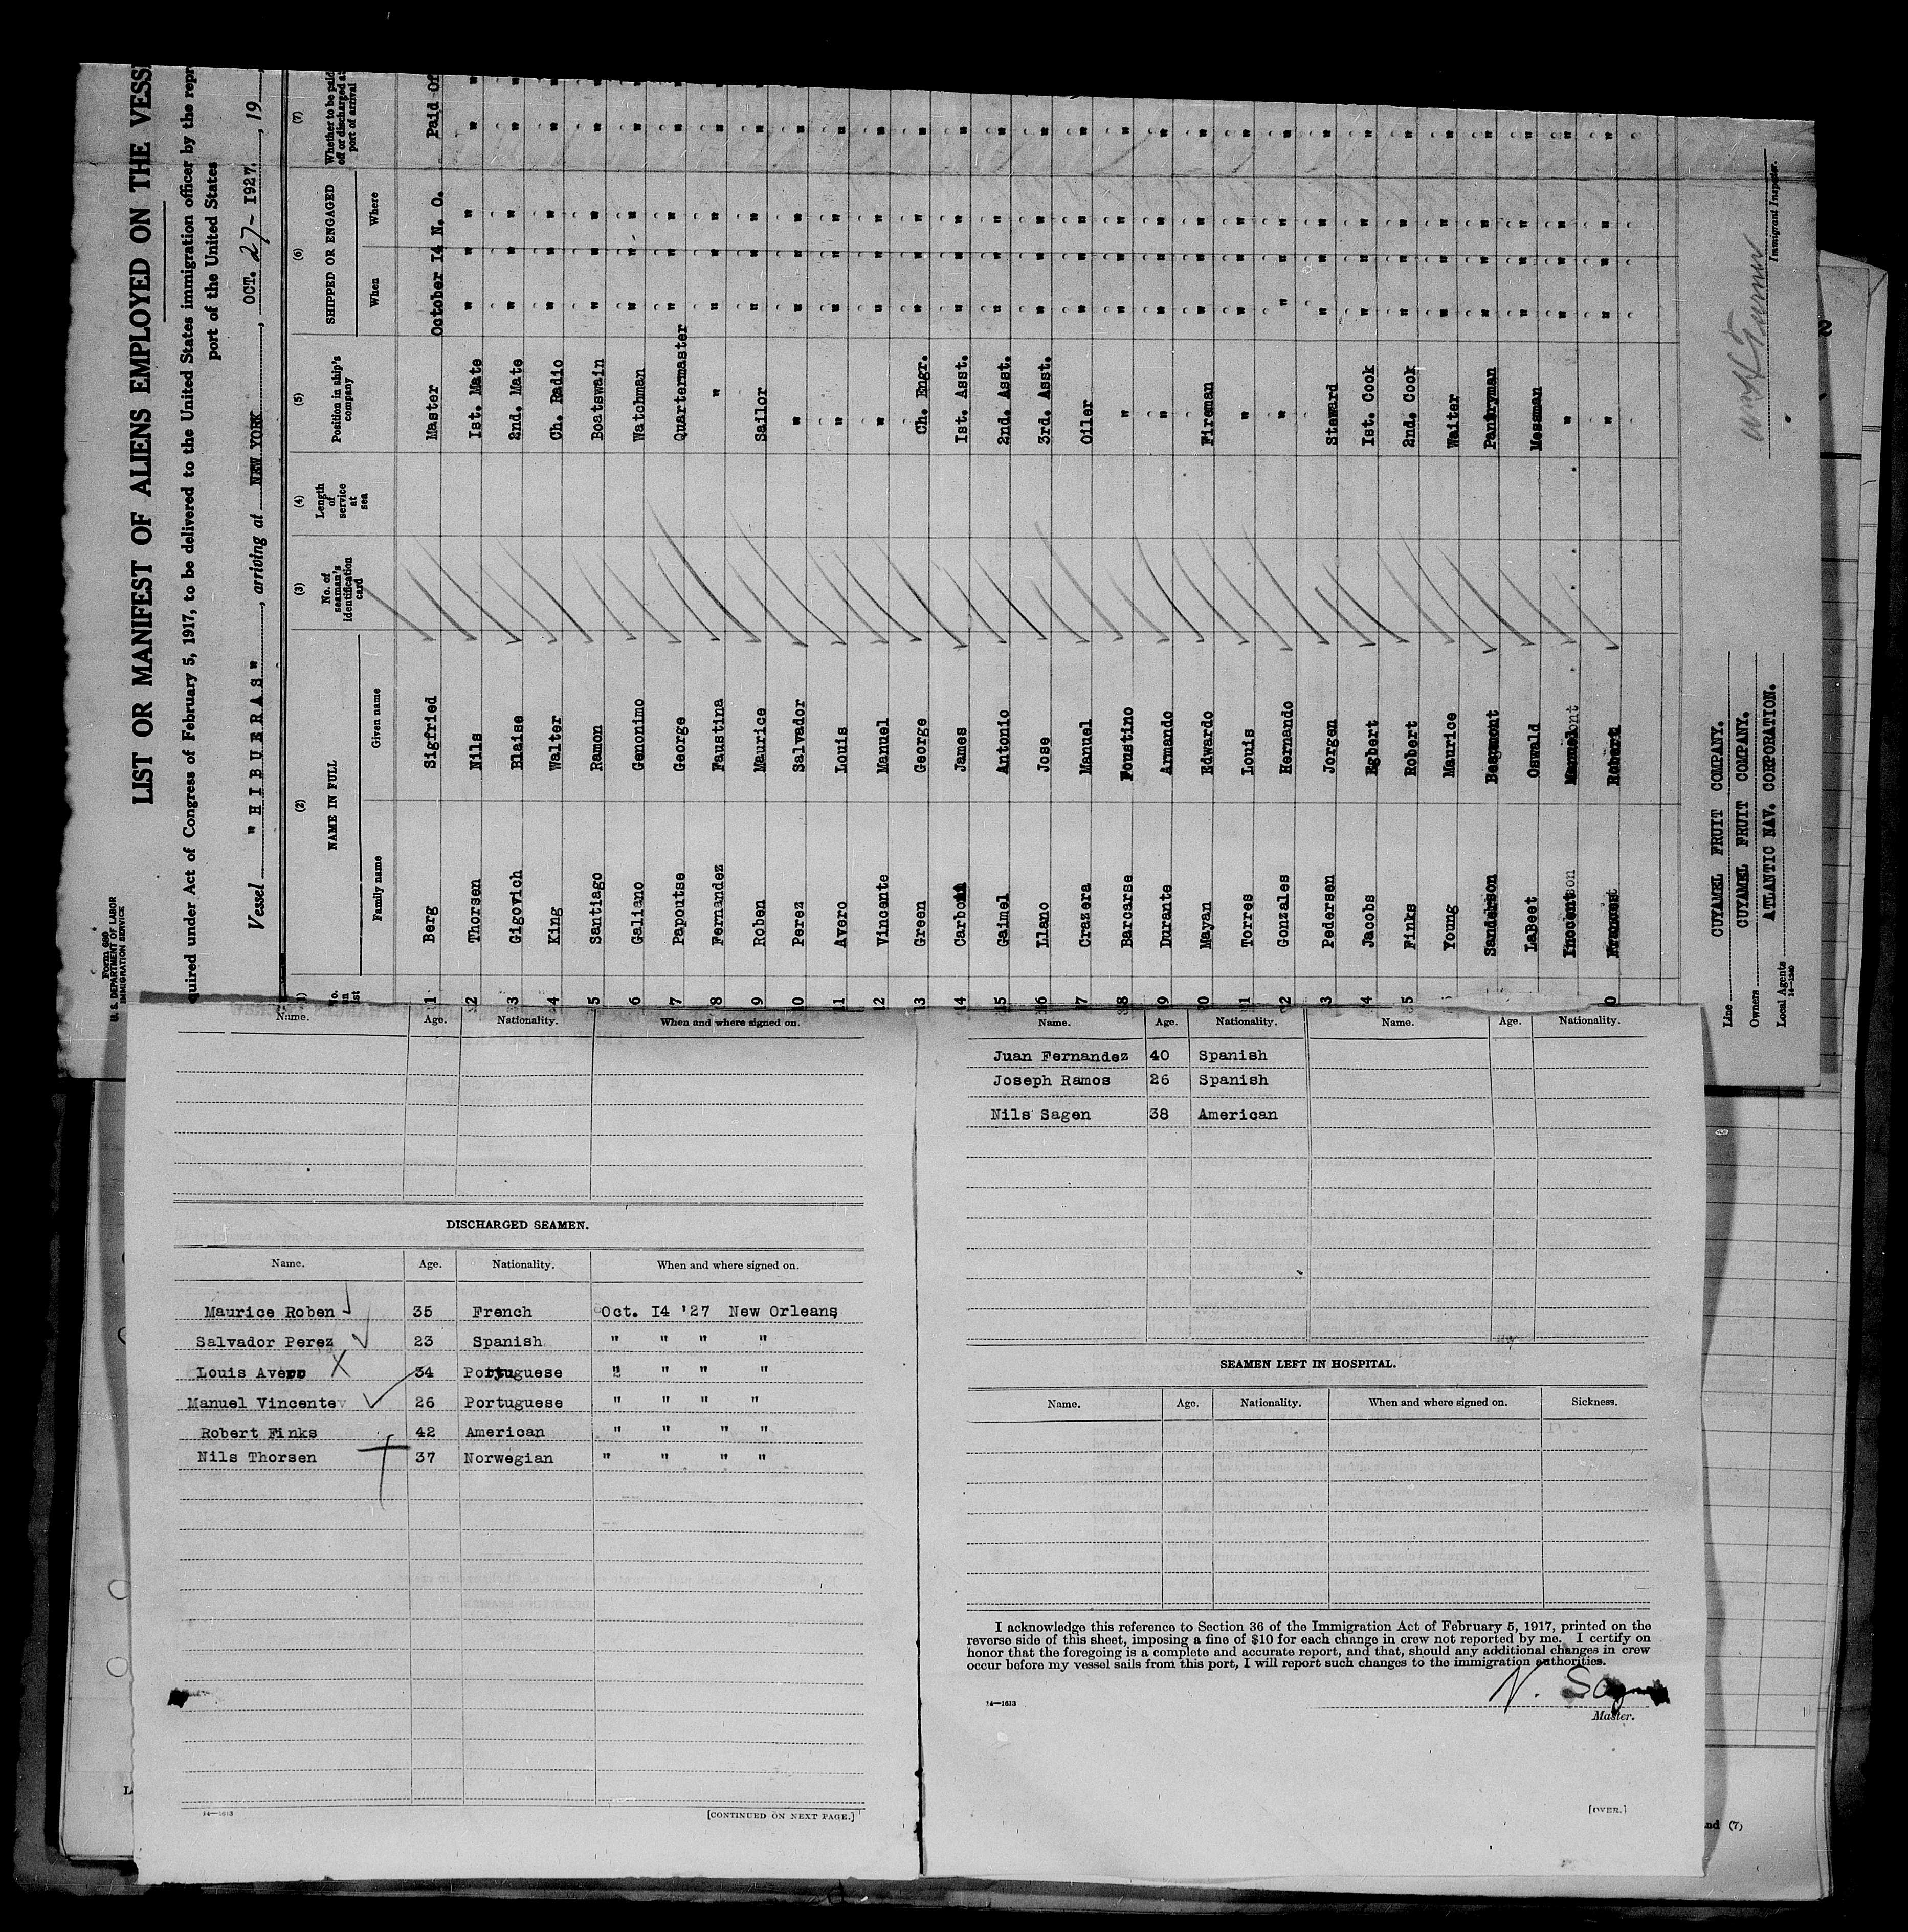 Form 680
U. S. DEPARTMENT OF LABOR
IMMIGRATION SERVICE
LIST OR MANIFEST OF ALIENS EMPLOYED ON THE
quired under Act of Congress of February 5, 1917, to be delivered to the United States immigration officer by the
port of the United States
Vessel "HIBUERAS", arriving at NEW YORK, OCT. 27- 1927., 19
(2) (3) (4) (5) (6) (7)
NAME IN FULL No. of seaman's identification card Length of service at sea Position in ship's company SHIPPED OR ENGAGED Whether to be paid off or discharged at port of arrival
Family name Given name When Where
1 Berg Sigfried Master October 14 N. O. Paid
2 Thorsen Nils Ist. Mate " " " " "
3 Gigovich Blaise 2nd. Mate " " " " "
4 King Walter Ch. Radio " " " " "
5 Santiago Ramon Boatswain " " " " "
6 Galiano Genonimo Watchman " " " " "
7 Papoutse George Quartermaster " " " " "
8 Fernandez Faustina " " " " " "
9 Roben Maurice Sailor " " " "
10 Perez Salvador " " " " "
11 Avero Louis " " " " "
12 Vincente Manuel " " " " "
13 Green George Ch. Engr. " " " "
14 James Ist. Asst. " " " "
15 Gaimel Antonio 2nd. Asst. " " " "
16 Llano Jose 3rd. Asst. " " " "
17 Crazera Manuel Oiler " " " "
18 Barcarse Foustino " " " " "
19 Durante Armando " " " " "
20 Mayan Edwardo Fireman " " " "
21 Torres Louis " " " " "
22 Gonzales Hernando " " " " "
3 Pedersen Jorgen Steward " " " "
4 Jacobs Egbert Ist. Cook " " " "
5 Finks Robert 2nd. Cook " " " "
Young Maurice Waiter " " " "
Sanderson Beaumont Pantryman " " " "
LaBeet Oswald Messman " " " "
" " " " "
0 Robert " " " " "
Line CUYAMEL FRUIT COMPANY.
Owners CUYAMEL FRUIT COMPANY.
Local Agents ATLANTIC NAV. CORPORATION.
14—1240
Immigrant Inspector.
2
Name. Age. Nationality. When and where signed on.
DISCHARGED SEAMEN.
Name. Age. Nationality. When and where signed on.
Maurice Roben 35 French Oct. I4 '27 New Orleans
Salvador Perez 23 Spanish " " " "
Louis Avero X 34 Portuguese " " " "
Manuel Vincente 26 Portuguese " " " "
Robert Finks 42 American " " " "
Nils Thorsen 37 Norwegian " " " "
14—1613
[CONTINUED ON NEXT PAGE.]
Name. Age. Nationality. Name. Age. Nationality.
Juan Fernandez 40 Spanish
Joseph Ramos 26 Spanish
Nils Sagen 38 American
SEAMEN LEFT IN HOSPITAL.
Name. Age. Nationality. When and where signed on. Sickness.
I acknowledge this reference to Section 36 of the Immigration Act of February 5, 1917, printed on the
reverse side of this sheet, imposing a fine of $10 for each change in crew not reported by me. I certify on
honor that the foregoing is a complete and accurate report, and that, should any additional changes in crew
occur before my vessel sails from this port, I will report such changes to the immigration authorities.
14—1613
Master.
[OVER.]
(7)